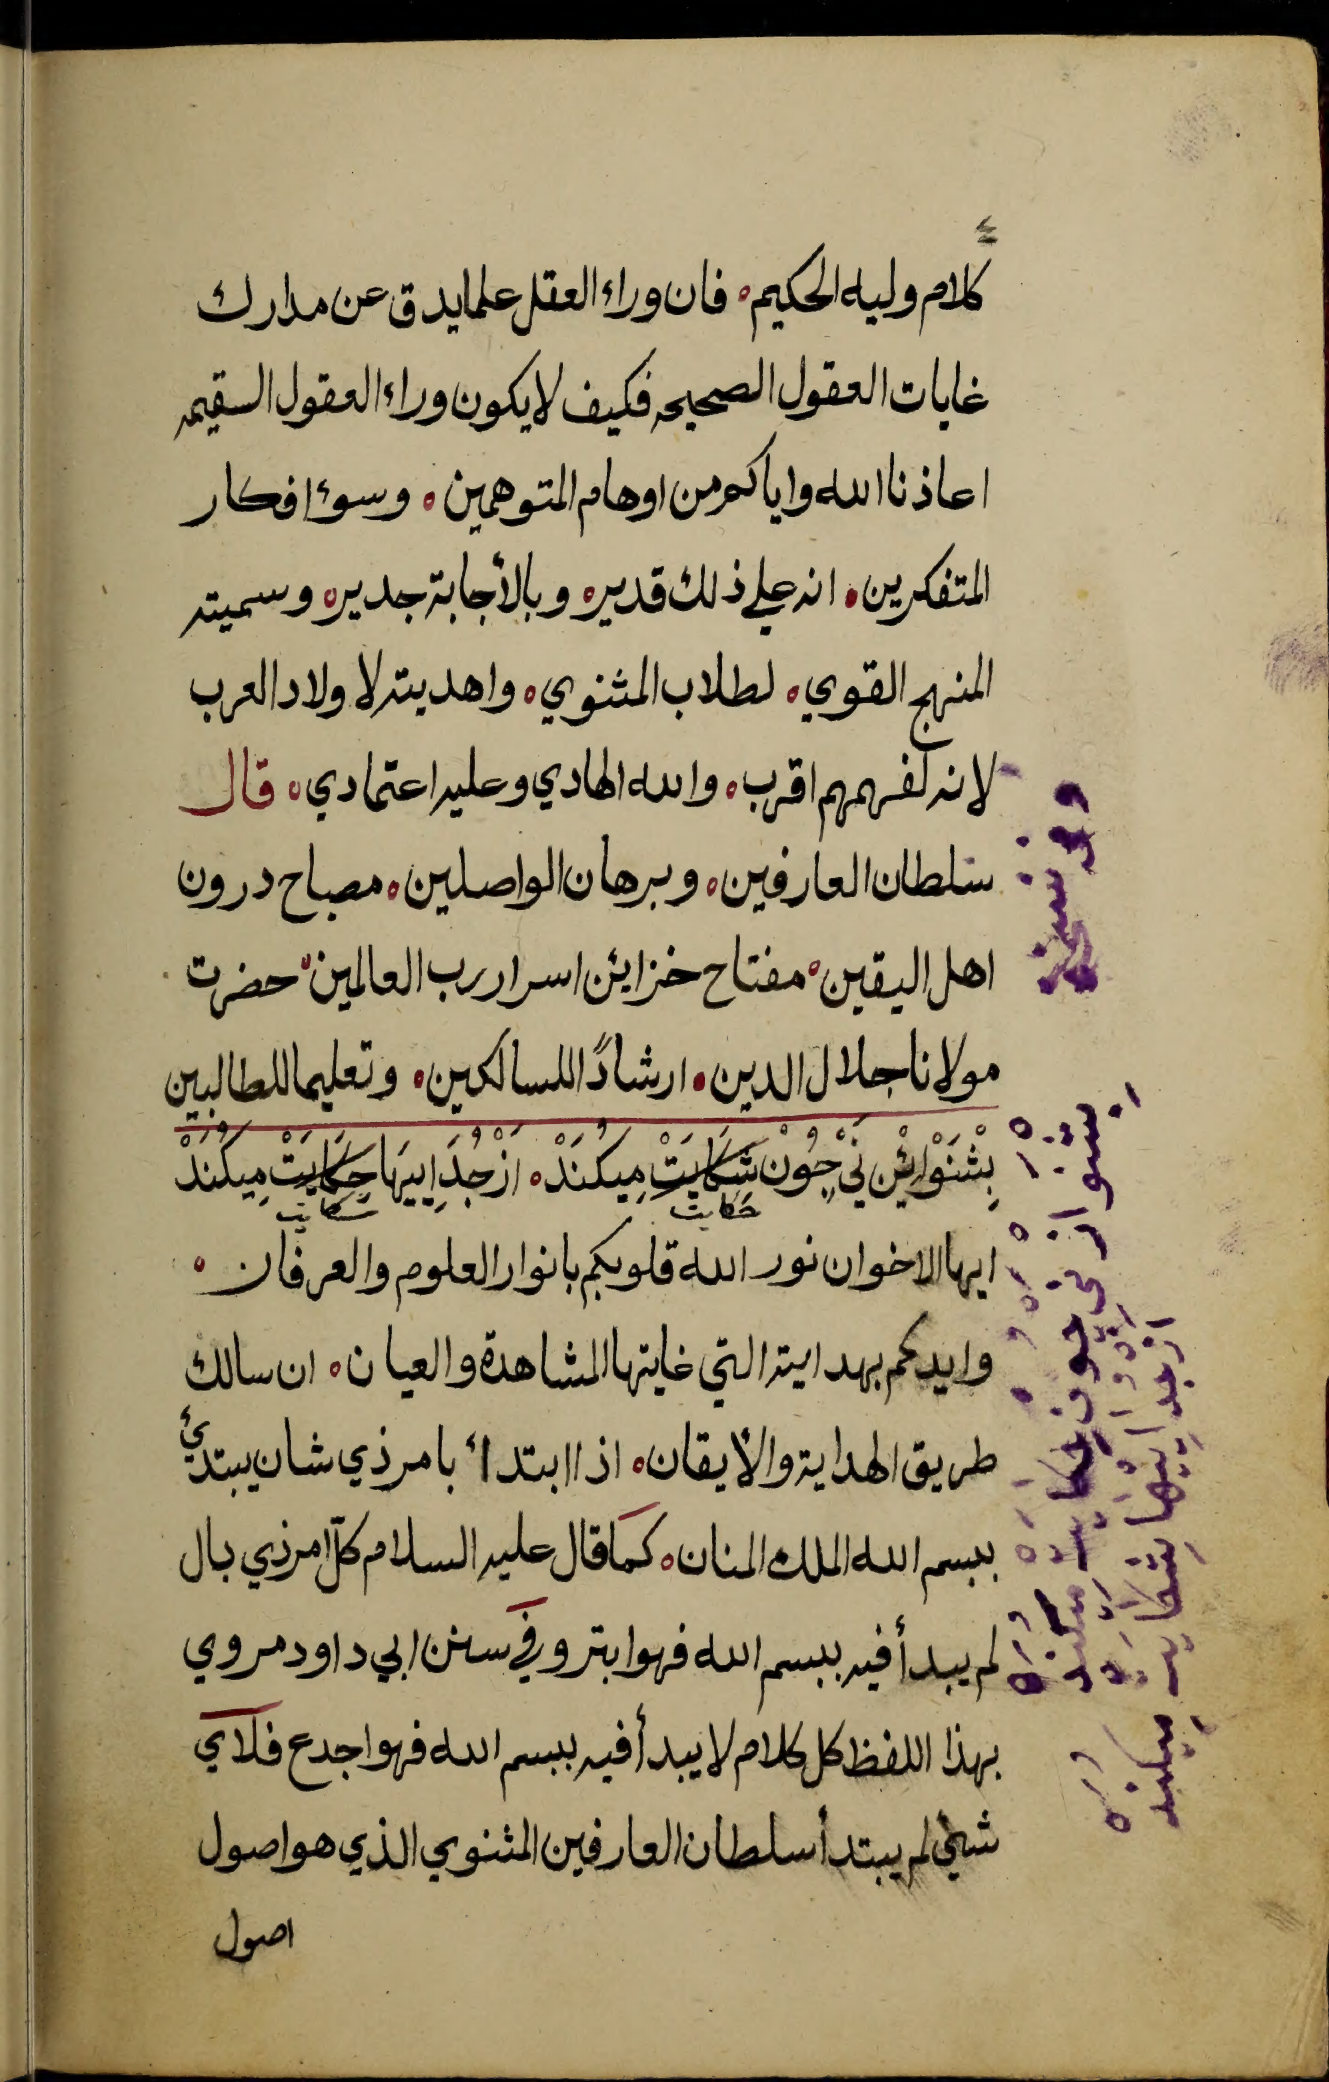 ٤
كلام وليه الحكيم ه فان وراء العقل علما يدق عن مدارك
غايات العقول الصحيحه فكيف لا يكون وراء العقول السقيمه
اعاذنا الله واياكم من اوهام المتوهمين ه وسوء افكار
المتفكرين ه انه على ذلك قدير ه وبالأجابة جدير ه وسميته
المنهج القوي ه لطلاب المثنوي ه واهديته لاولاد العرب
لانه لفهمهم اقرب ه والله الهادي وعليه اعتمادي ه قال
سلطان العارفين ه وبرهان الواصلين ه مصباح درون
اهل اليقين ه مفتاح خزايئن اسرار رب العالمين ه حضرت
مولانا جلال الدين ه ارشادًا للسالكين ه وتعليما للطالبين
بِشْنَوْ ايْن نَىْ چُوْن شَكَايَتْ مِيكُنَدْ ه ازْ جُدَايِيهَا حِكَايَتْ مِيكُنَدْ
حكايت شكايت
ايها الاخوان نور الله قلوبكم بانوار العلوم والعرفان ه
وايدكم بهدايته التي غايتها المشاهدة والعيان ه ان سالك
طريق الهداية والأيقان ه اذا ابتدأ بامر ذي شان يبتدئ
ببسم الله الملك المنان ه كما قال عليه السلام كل امر ذي بال
لم يبدأ فيه ببسم الله فهو ابتر وفي سنن ابي داود مروي
بهذا اللفظ كل كلام لا يبدأ فيه ببسم الله فهو اجدع فلاي
شيئ لم يبتدأ سلطان العارفين المثنوي الذي هو اصول
اصول
وفى نسخة
بشنو از نى چون حكايت ميكند
از جداييها شكايت ميكند